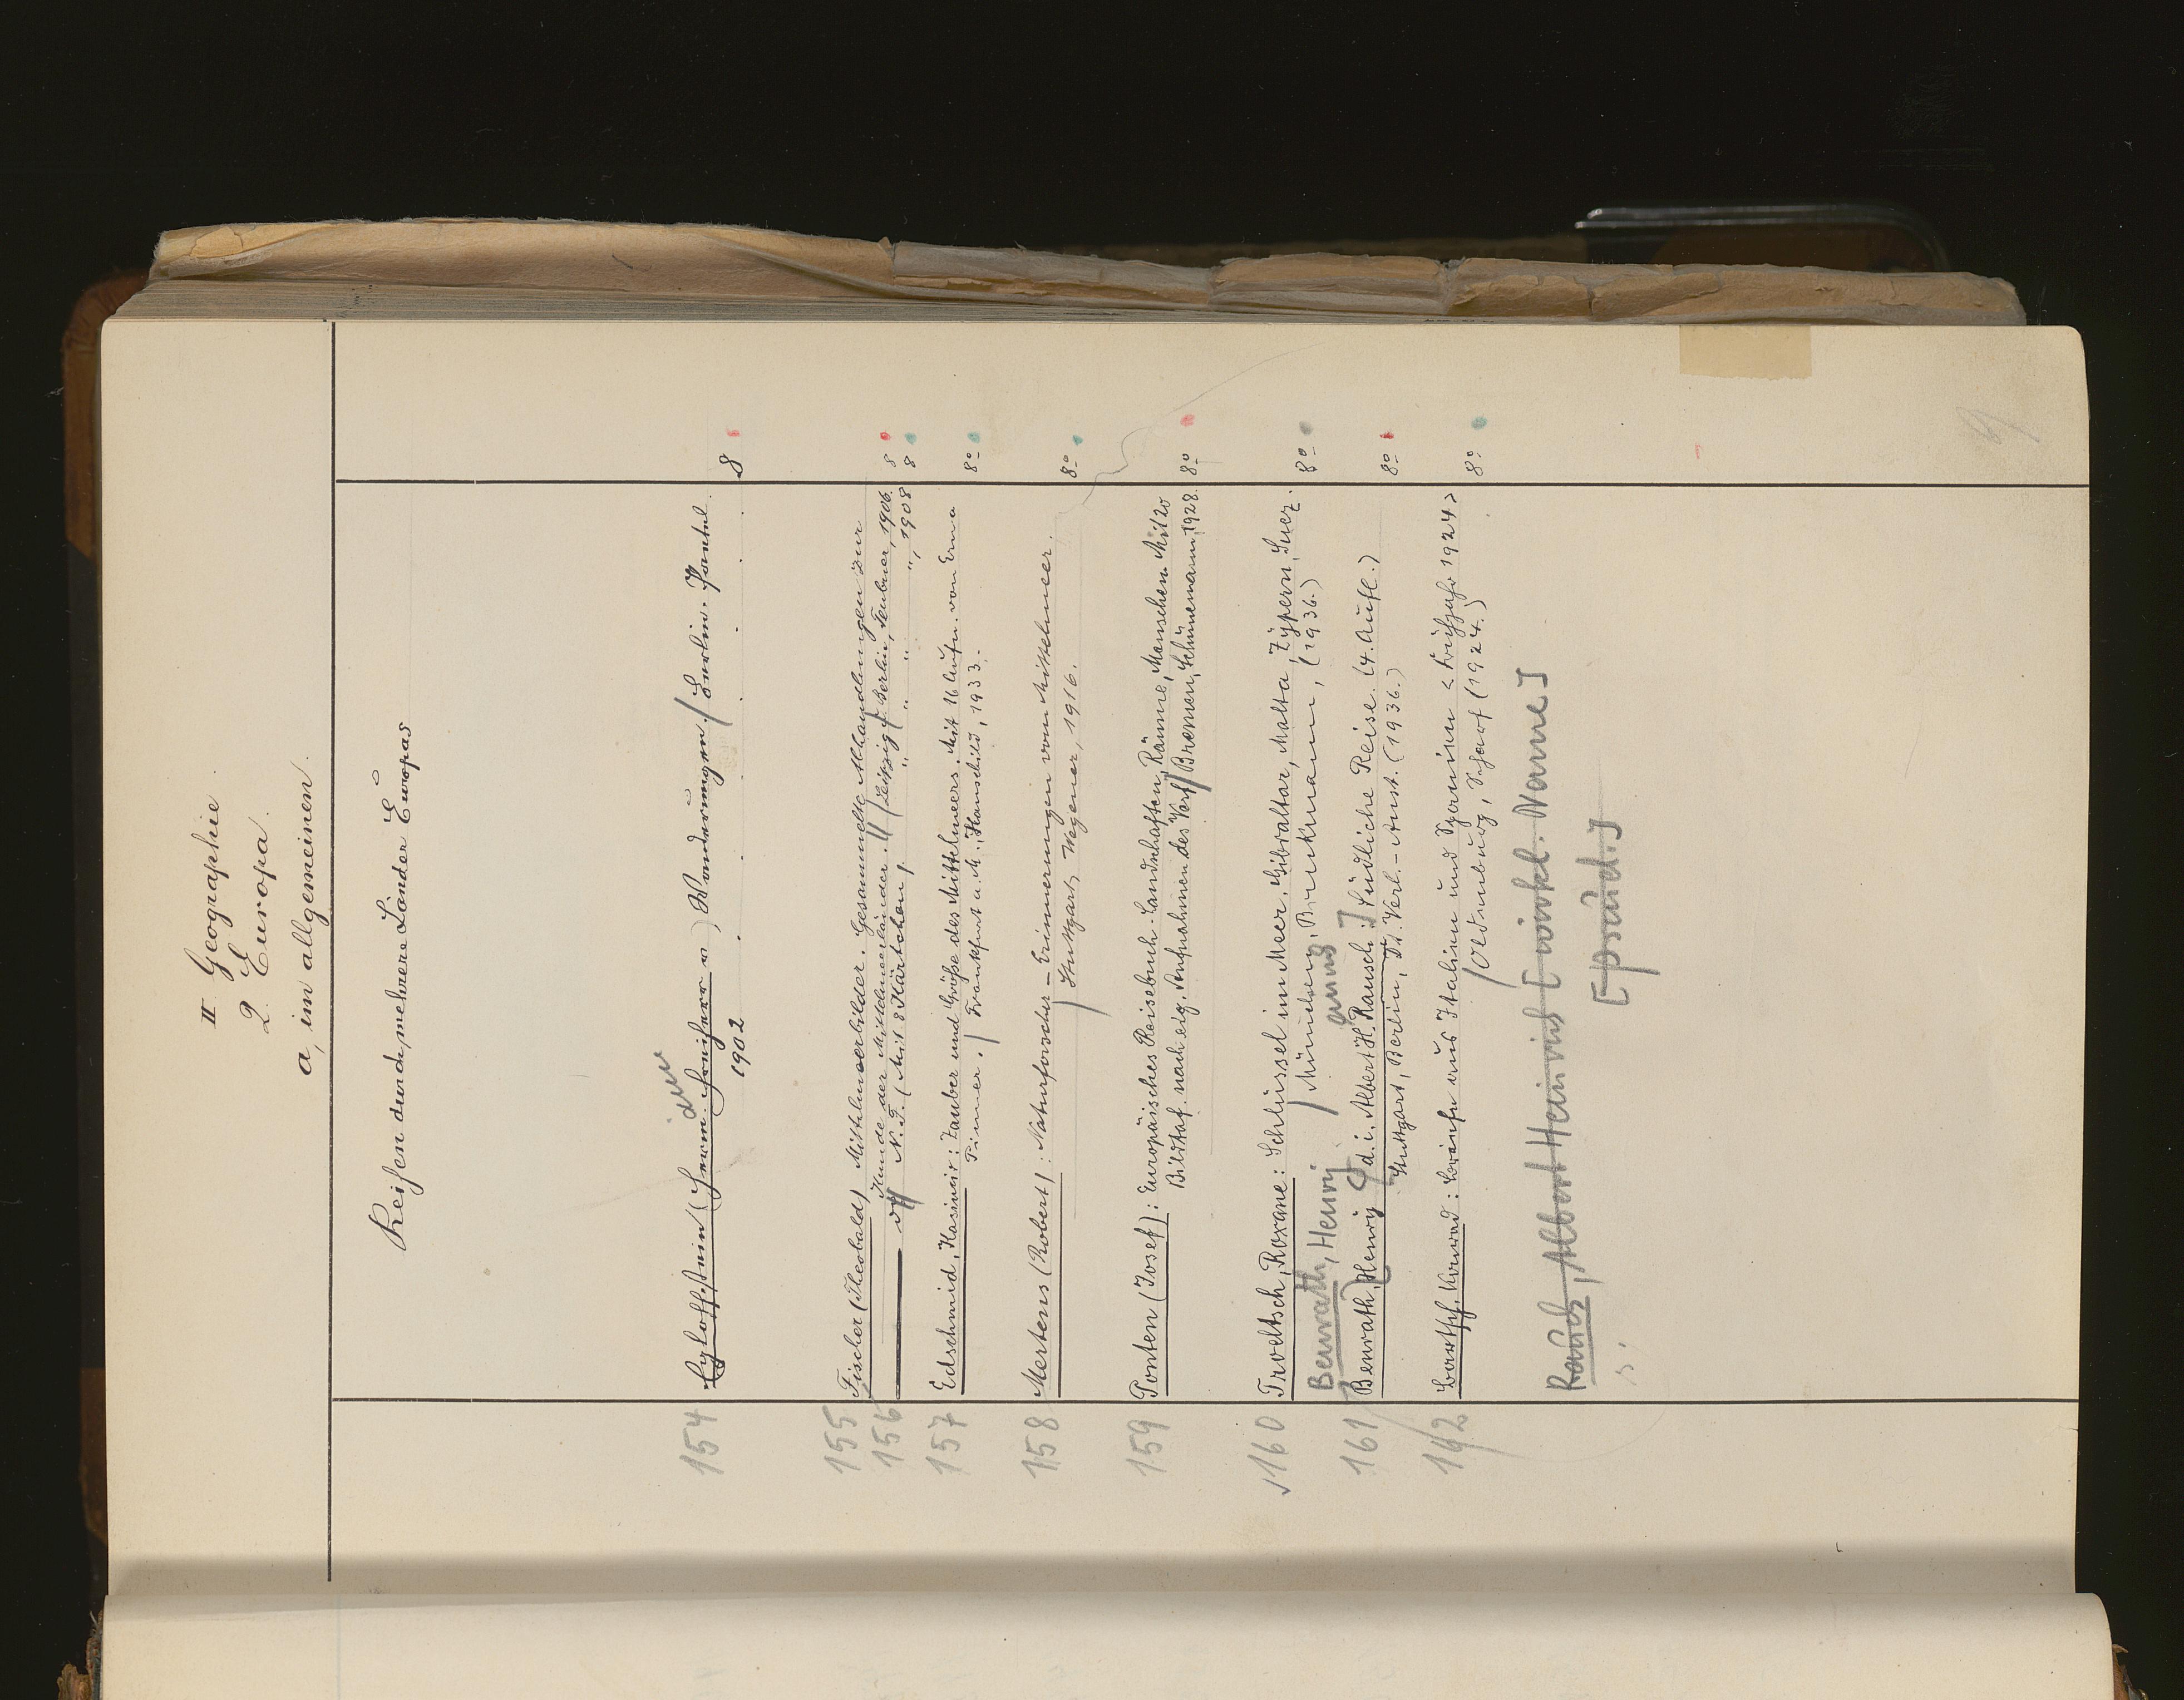 II. Geographie
2. Europa.
a, im allgemeinen.
Reisen durch mehrere Länder Europas
154 Egloffstein (Herm. Freiherr v) Wanderungen. / Berlin. Paetel 8
1902
155 Fischer (Theobald) Mittelmeerbilder. Gesammelte Abhandlungen zur
Kunde der Mittelmeerländer. // Leipzig u. Berlin, Teubner, 1906. 8
156 N. F. (Mit 8 Kärtchen) " " " ", 1908 8
157 Edschmid, Kasimir: Zauber und Größe des Mittelmeers. Mit 16 Aufn. von Erna
Pinner. / Frankfurt a. M., Hauschild, 1933. 8°
158 Mertens (Robert): Naturforscher-Erinnerungen vom Mittelmeer.
/ Stuttgart, Wegener, 1916. 8°
159 Ponten (Josef): Europäisches Reisebuch. Landschaften, Räume, Menschen. Mit 20
Bildtaf. nach eig. Aufnahmen des Verf / Bremen, Schünemann, 1928. 8°
160 Troeltsch, Roxane: Schlüssel im Meer. Gibraltar, Malta, Zypern, Suez.
/ München, Bruckmann, (1936.) 8°
Benrath, Henry
161 Benrath, Henry [d. i. Albert H. Rausch:] Südliche Reise. (4. Aufl.)
Stuttgart, Berlin, Dt. Verl.-Anst. (1936.) 8°
162 Bartsch, Konrad: Briefe aus Italien und Spanien < Frühjahr 1924 >
/ Oldenburg, (1924.) 8°
Rausch, Albert Heinrich [wirkl. Name]
s. [pseud.]